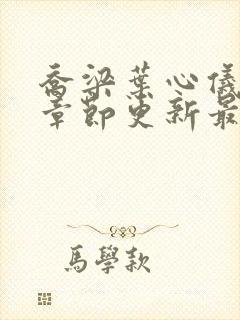 喬梁葉心儀
章節更新最
馬學款